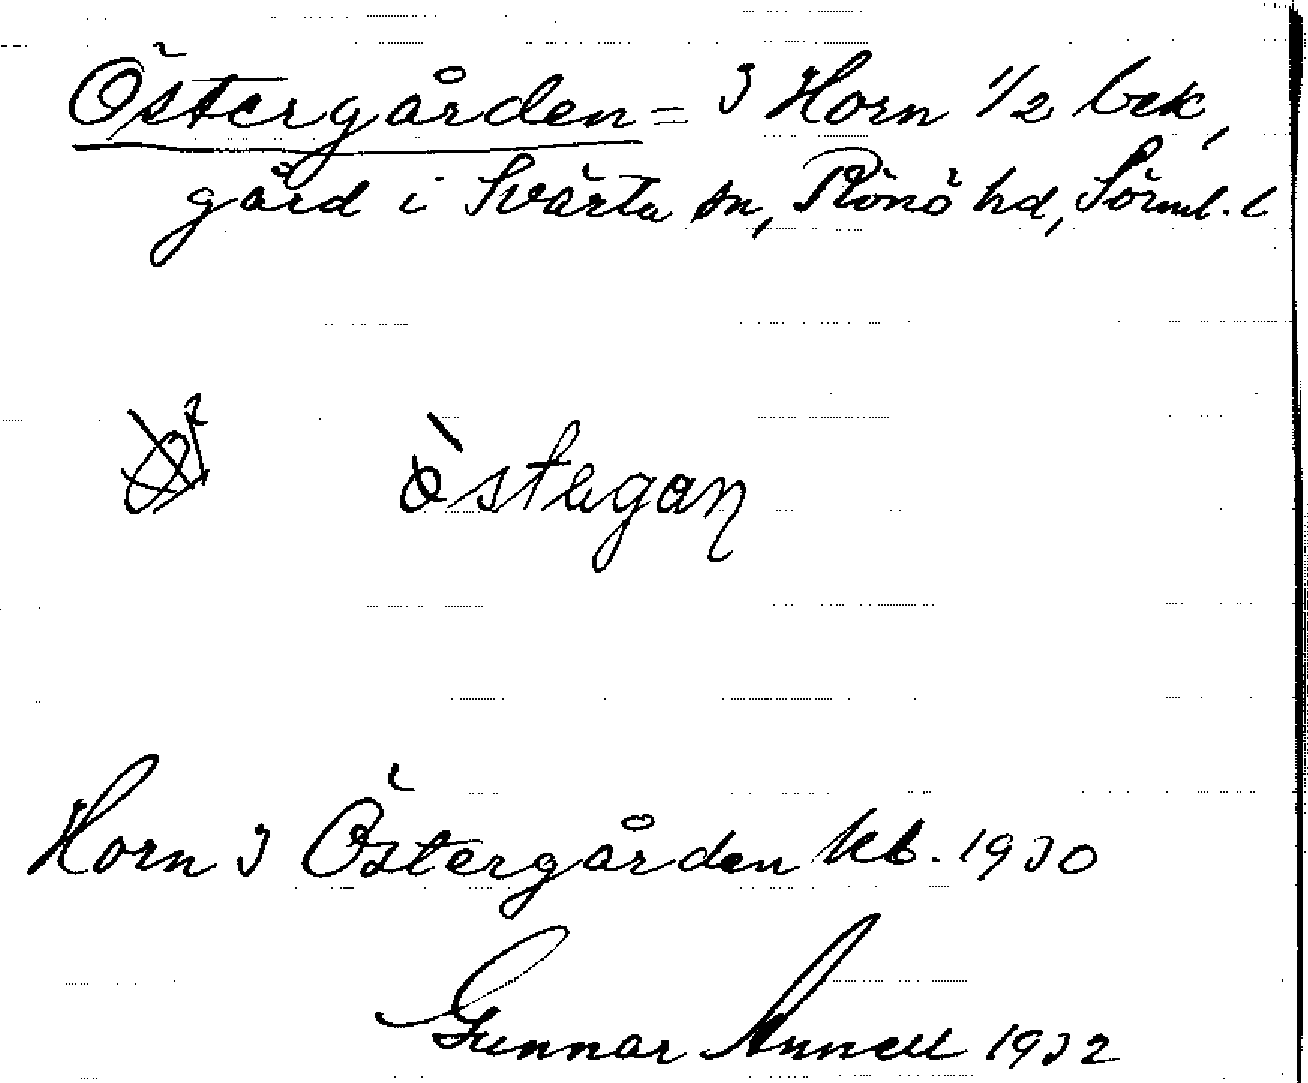 Östergården = 3 Horn 1/2 bek,
gård i Svärta sn, Rönö hd, Sörml. l
Horn 3 Östergården kb. 1930
Gunnar Annell 1932